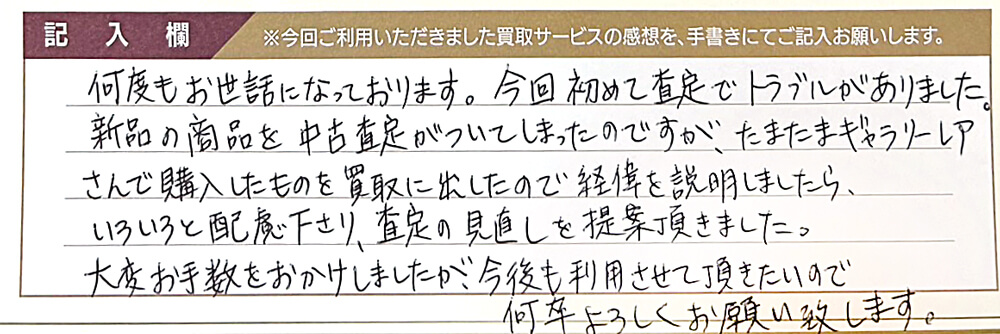 記入欄 ※今回ご利用いただきました買取サービスの感想を、手書きにてご記入お願いします。
何度もお世話になっております。今回初めて査定でトラブルがありました。
新品の商品を中古査定がついてしまったのですが、たまたまギャラリーレア
さんで購入したものを買取に出したので経偉を説明しましたら、
いろいろと配慮下さり、査定の見直しを提案頂きました。
大変お手数をおかけしましたが、今後も利用させて頂きたいので
何卒よろしくお願い致します。